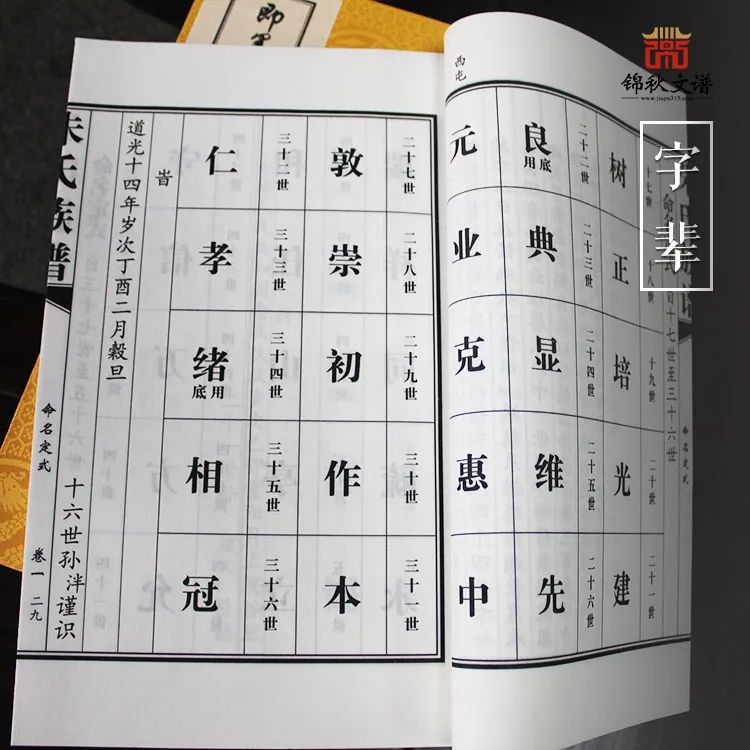 锦秋文谱
www.jiapu315.com
字辈
即墨
西屯
命名定式
至三十六世
十七世 十八世 十九世 二十世 二十一世
树 正 培 光 建
二十二世 二十三世 二十四世 二十五世 二十六世
良底用 典 显 维 先
元 业 克 惠 中
二十七世 二十八世 二十九世 三十世 三十一世
敦 崇 初 作 本
三十二世 三十三世 三十四世 三十五世 三十六世
仁 孝 绪用底 相 冠
旹
道光十四年岁次丁酉二月榖旦
十六世孙泮谨识
朱氏族谱
命名定式
卷一 二九